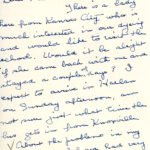 There is a lady
here from Kansas City who is
much interested in our
and would like to visit the
school. Would it be alright
if she came back with me and
stayed a couple days. I
expect to arrive in Harlan
on Sunday afternoon, am
not sure just what time the
bus gets in from Knoxville
About the problems in my
had very